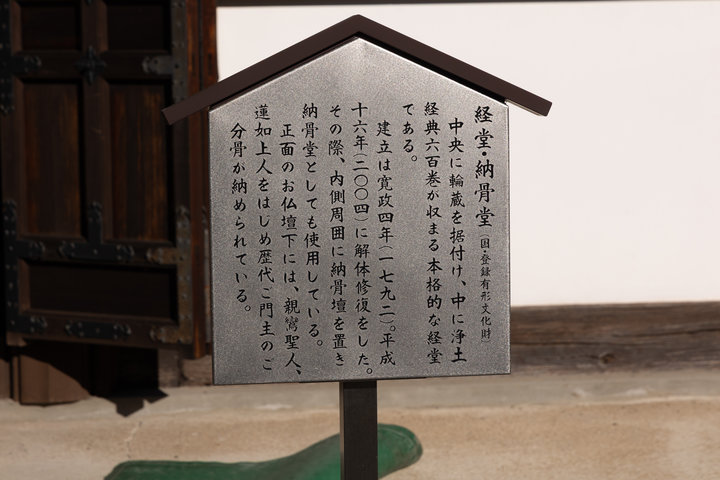 経堂・納骨堂（国・登録有形文化財）
中央に輪蔵を据付け、中に浄土
経典六百巻が収まる本格的な経堂
である。
建立は寛政四年（一七九二）。平成
十六年（二〇〇四）に解体修復をした。
その際、内側周囲に納骨壇を置き
納骨堂としても使用している。
正面のお仏壇下には、親鸞聖人、
蓮如上人をはじめ歴代ご門主のご
分骨が納められている。